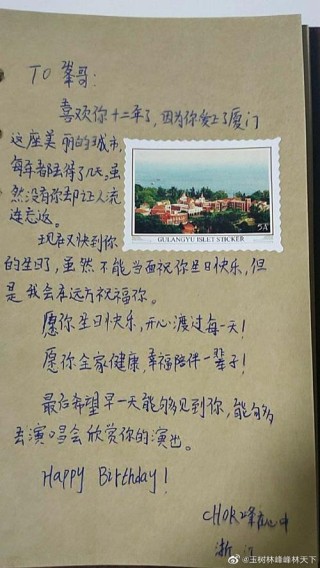 TO 峯哥:
喜欢你十二年了,因为你爱上了厦门
这座美丽的城市,
每年都去待了几天,虽
然没有你却让人流
连忘返。
GULANGYU ISLET STICKER
现在又快到你
的生日了,虽然不能当面祝你生日快乐,但
是我会在远方祝福你。
愿你生日快乐,开心渡过每一天!
愿你全家健康,幸福陪伴一辈子!
最后希望早一天能够见到你,能够
去演唱会欣赏你的演出。
Happy Birthday!
峰在心中
浙江
@玉树林峰峰林天下